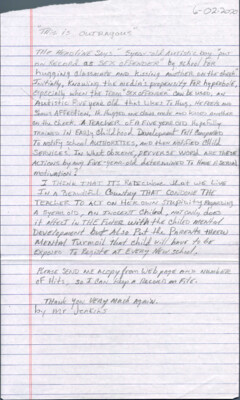 6-02-2020
This is Outrageous
The Headline says " 5 year old autistic boy "put
on record as sex offender" by school for
hugging classmate and kissing another on the cheek"
Initially, knowing the media's propensity for hyperbole,
especially when the term "sex offender" can be used. An
Autistic Five year old that likes to Hug. He feels and
shows affection. He hugged one class mate and kisses another
on the cheek. A teacher of a five year old hopefully
trained in Early childhood Development felt compelled
to notify school authorities, and then notified child
services. In what obscene, perverse world are these
actions by any five-year-old determined to have a sexual
motivation?
I think that it's
that we live
in a beautiful Country that condone the
teacher to act on her own stupidity regarding
a 5 year old, an innocent child, not only does
it affect in the future with the child mental
development but also put the parents threw
mental turmoil that child will have to be
expose to register at every new school.
Please send me a copy from web page and number
of hits, so I can keep a record on file.
Thank you very much again.
by Mr Jenkins